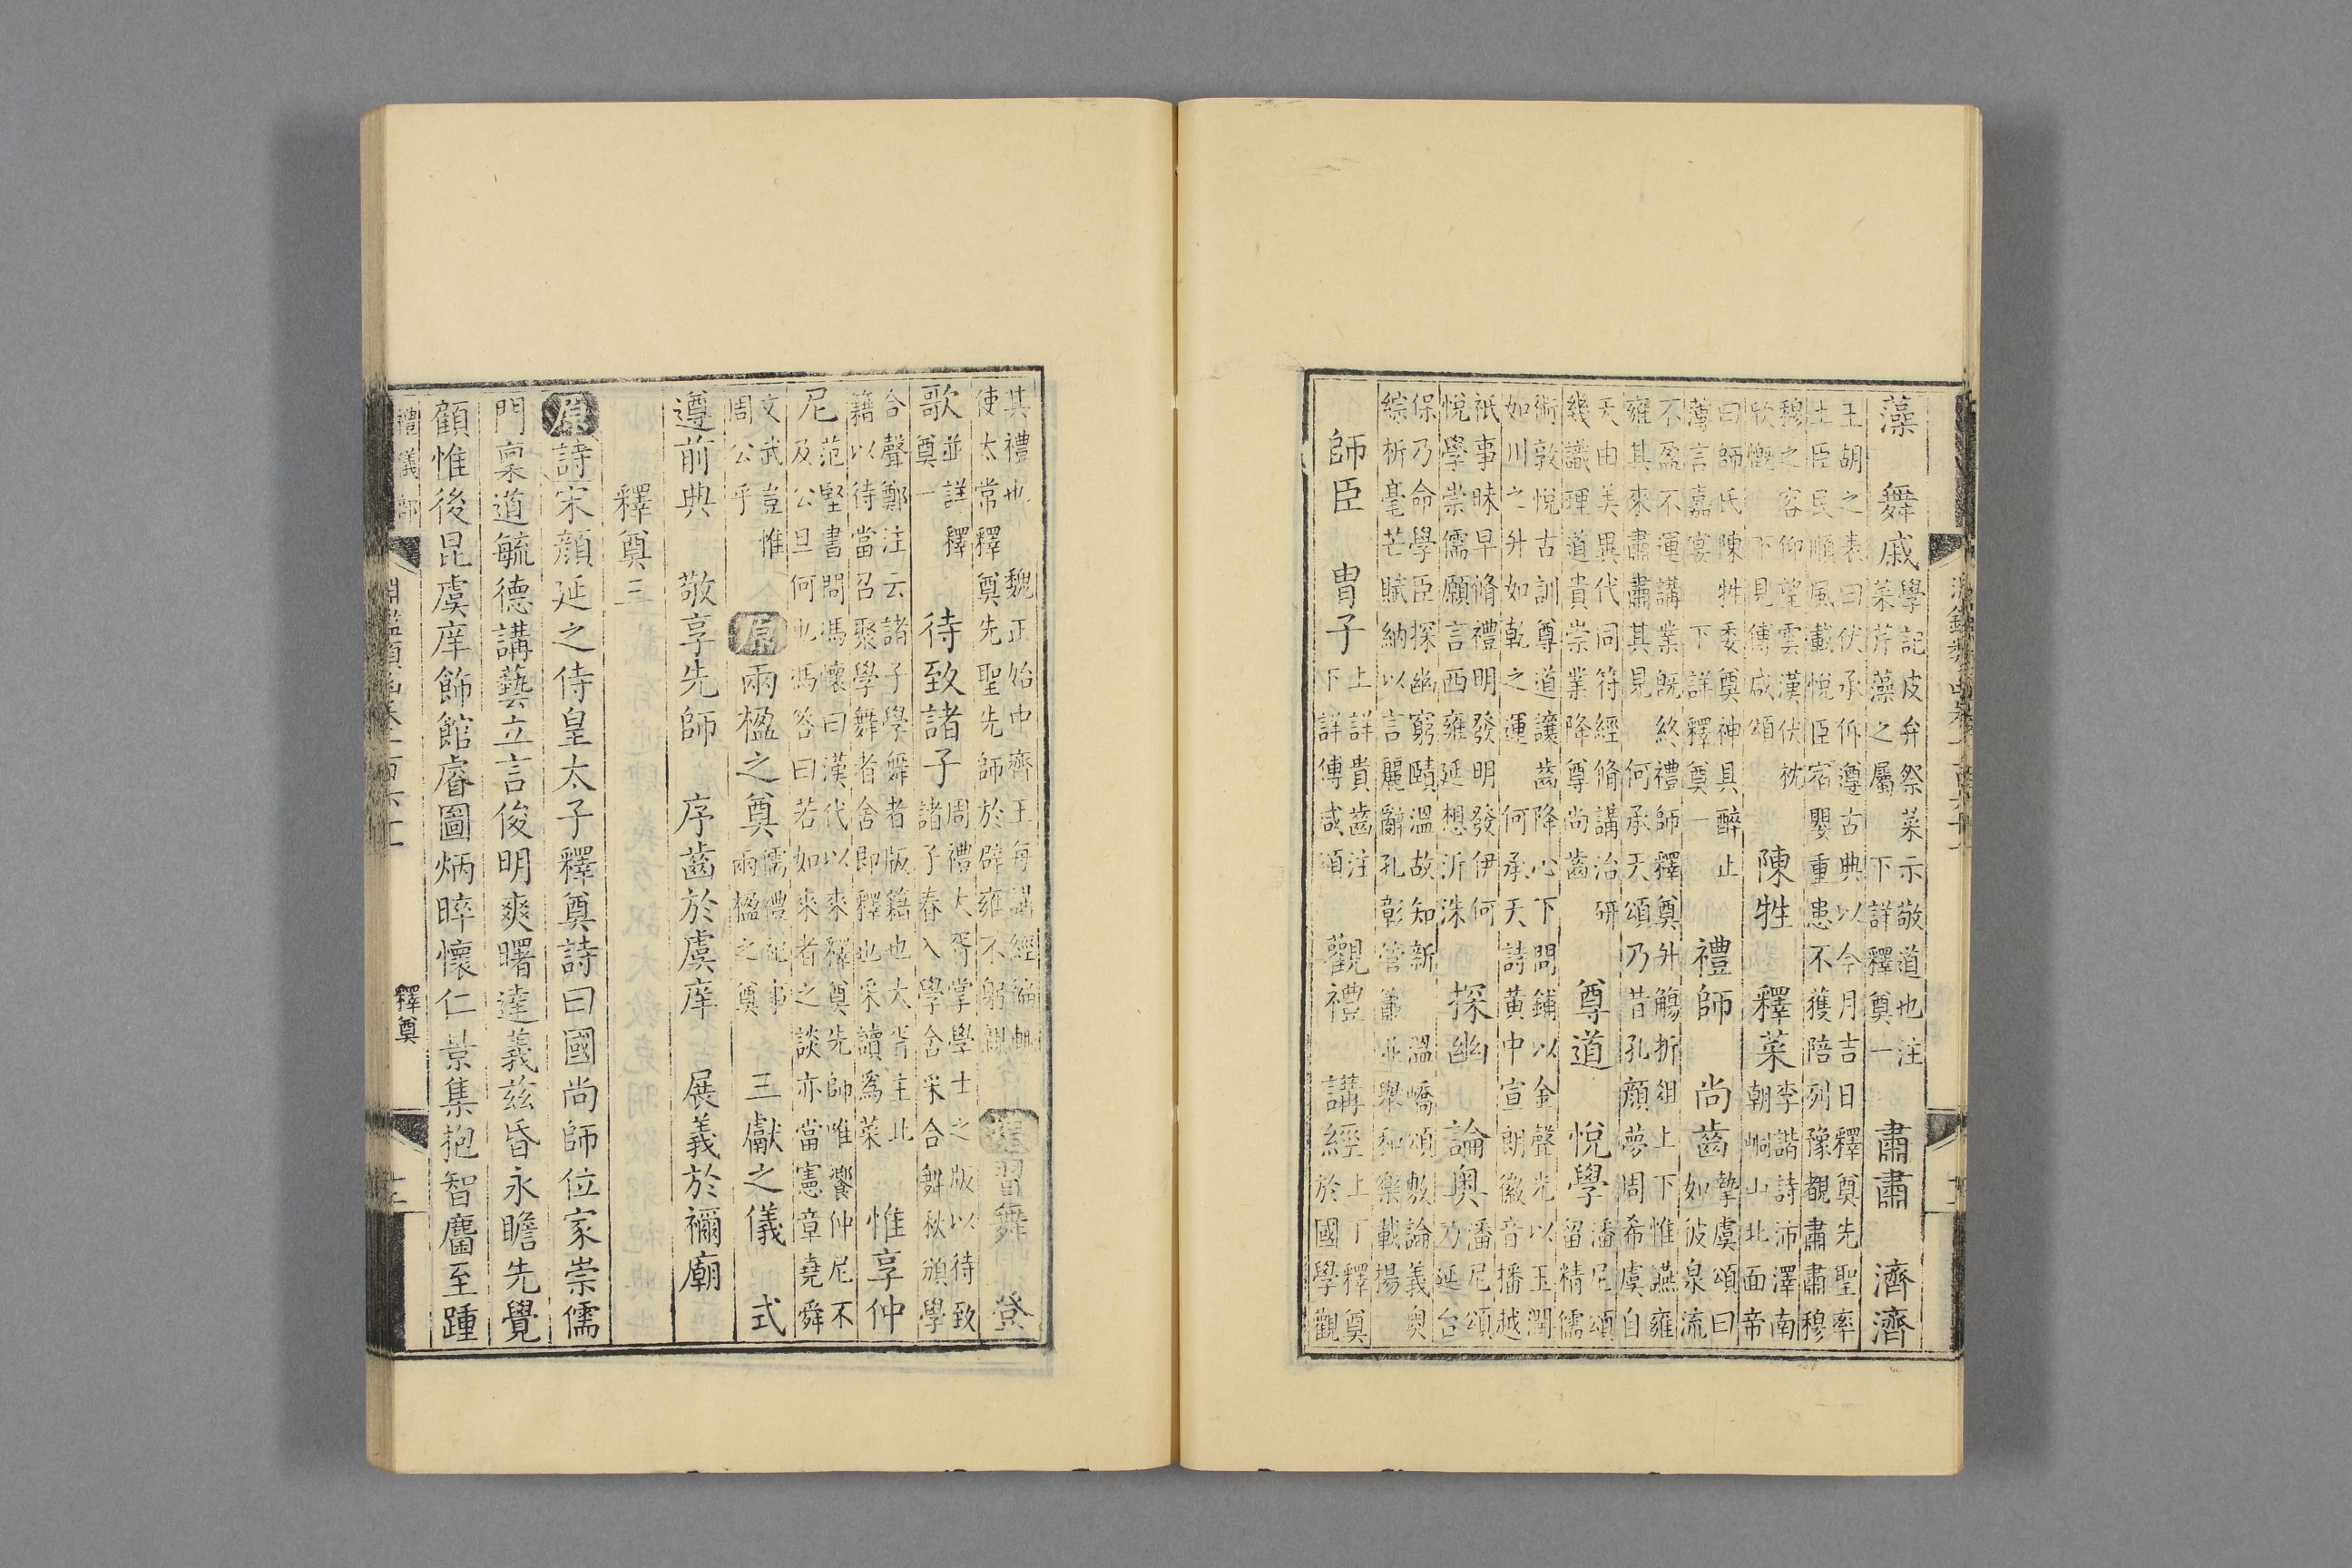 藻 舞戚 學記皮弁祭菜示敬道也注菜芹藻之屬 下詳釋奠一 肅肅 濟濟
王胡之表曰伏承仰遵古典以今月吉日釋奠先聖率
土臣民順風載悅臣宿嬰重患不獲陪列豫覩肅肅穆
魏之容仰望雲漢伏枕欣慨 下見傅咸頌 陳牲 釋菜 李諧詩沛澤南朝峒山北面帝
曰師氏陳牲委奠神具醉止薄言嘉宴 下詳釋奠一 禮師 尚齒 摯虞頌曰如彼泉流
不盈不運講業既終禮師釋奠升觴折俎上下惟讌雍
雍其來肅肅其見 何承天頌乃昔孔顏夢周希虞自
天由美異代同符經脩講治研幾識理道貴崇業降尊尚齒 尊道 悅學 潘尼頌留精儒
術敦悅古訓尊道讓齒降心下問鋪以金聲光以玉潤
如川之升如乾之運 何承天詩黃中宣朗徽音播越
祇事昧早脩禮明發明發伊何悅學崇儒願言西雍延想沂洙 探幽 論奧 潘尼頌乃延台
保乃命學臣探幽窮賾溫故知新 溫嶠頌敷論義奧
綜析毫芒賦納以言麗辭孔彰管簫並舉和樂載揚
師臣 胄子 上詳貴齒注下詳傅咸頌 觀禮 講經 上丁釋奠於國學觀
其禮也 魏正始中齊王每講經徧輒使太常釋奠先聖先師於辟雍不躬親 習舞 登
歌 並詳釋奠一 待致諸子 周禮大胥掌學士之版以待致諸子春入學舍采合舞秋頒學
合聲鄭注云諸子學舞者版籍也大胥主此籍以待當召聚學舞者舍即釋也采讀爲菜 惟享仲
尼 范堅書問馮懷曰漢代以來釋奠先師唯饗仲尼不及公旦何也馮答曰若如來者之談亦當憲章堯舜
文武豈惟周公乎 原 兩楹之奠 儒禮記事兩楹之奠 三獻之儀 式
遵前典 敬享先師 序齒於虞庠 展義於禰廟
釋奠三
原 詩宋顏延之侍皇太子釋奠詩曰國尚師位家崇儒
門稟道毓德講藝立言俊明爽曙達義茲昏永瞻先覺
顧惟後昆虞庠飾館睿圖炳晬懷仁景集抱智麕至踵
禮儀部
釋奠